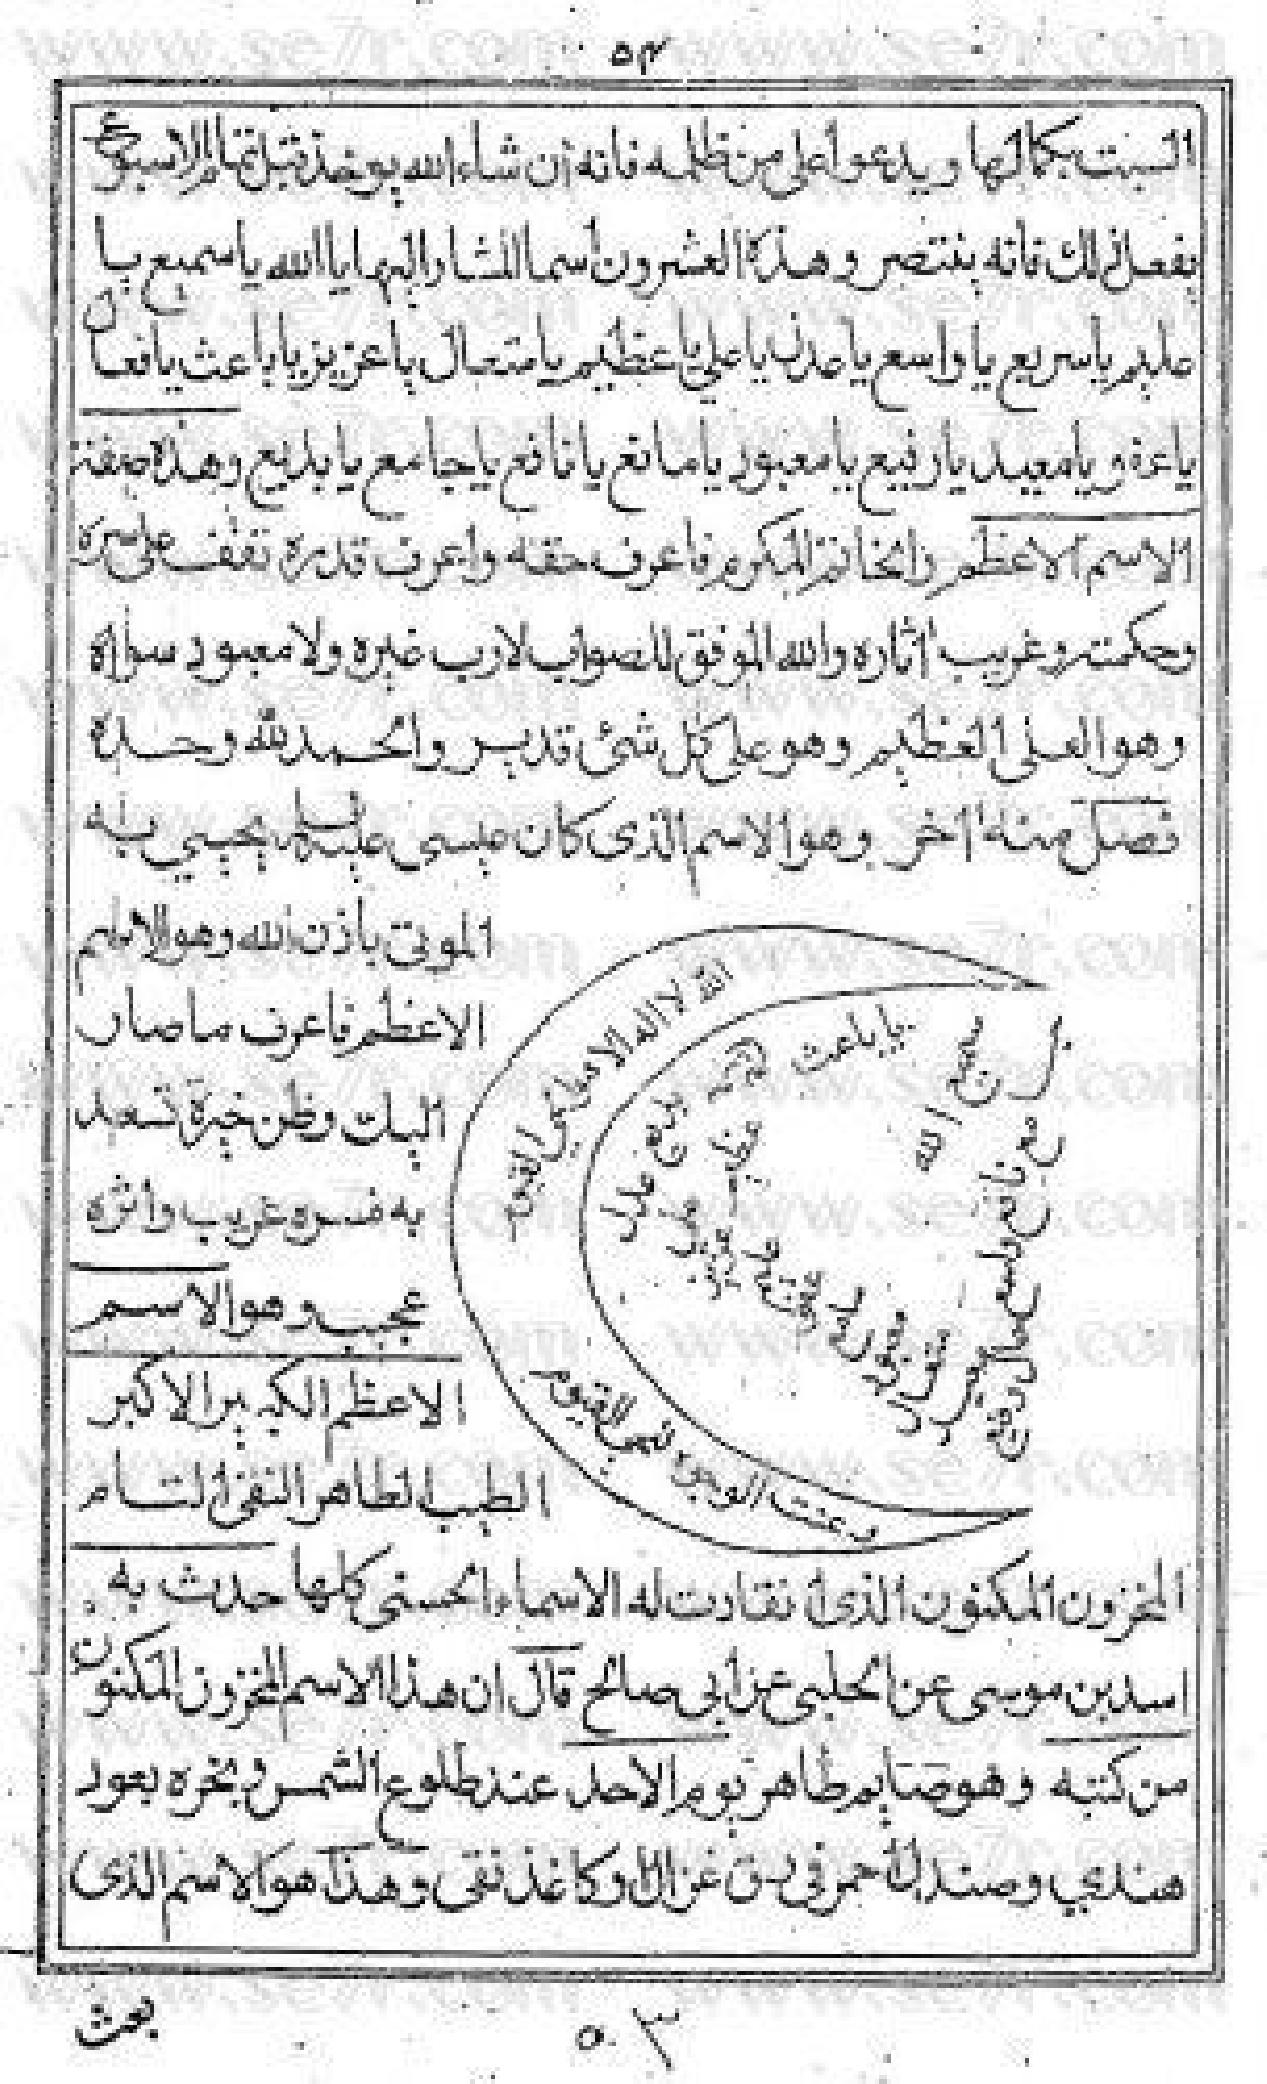 ٥٣
السبت بكمالها ويدعوا على من ظلمه فانه ان شاء الله يوخذ قبل تمام الاسبوع
يفعل ذلك فانه ينتصر وهذه العشرون اسما المشار اليها يا الله يا سميع يا
عليم يا سريع يا واسع يا عدل يا علي يا عظيم يا متعال يا عزيز يا باعث يا فعال
يا عفو يا معيد يا رفيع يا معبود يا مانع يا نافع يا جامع يا بديع وهذه صفة
الاسم الاعظم والخاتم المكرم فاعرف حقه واعرف قدره تقف على سره
وحكمته وغريب اثاره والله الموفق للصواب لارب غيره ولا معبود سواه
وهو العلي العظيم وهو على كل شئ قدير والحمد لله وحده
فصل منه اخر وهو الاسم الذى كان عيسى عليه السلام يحيي به
الموتى باذن الله وهو الاسم
الاعظم فاعرف ما صار
اليك وظن خيرة تسعد
به فسره غريب واثره
عجيب وهو الاسم
الاعظم الكبير الاكبر
الطيب الطاهر النقي التام
الله لا اله الا هو الحي القيوم
يا باعث
بديع عدل
عظيم
علي
عزيز
سميع
الله
نافع واسع
معبود
متعال
رفيع
وعنت الوجوه للحي القيوم
المخزون المكنون الذى انقادت له الاسماء الحسنى كلها حدث به
اسد بن موسى عن الحلبى عن ابي صالح قال ان هذا الاسم المخزون المكنون
من كتبه وهو صايم طاهر يوم الاحد عند طلوع الشمس وبخره بعود
هندي وصندل احمر في رق غزال او كاغذ نقى وهذا هو الاسم الذى
بعث
٥٠٣
www.se7r.com